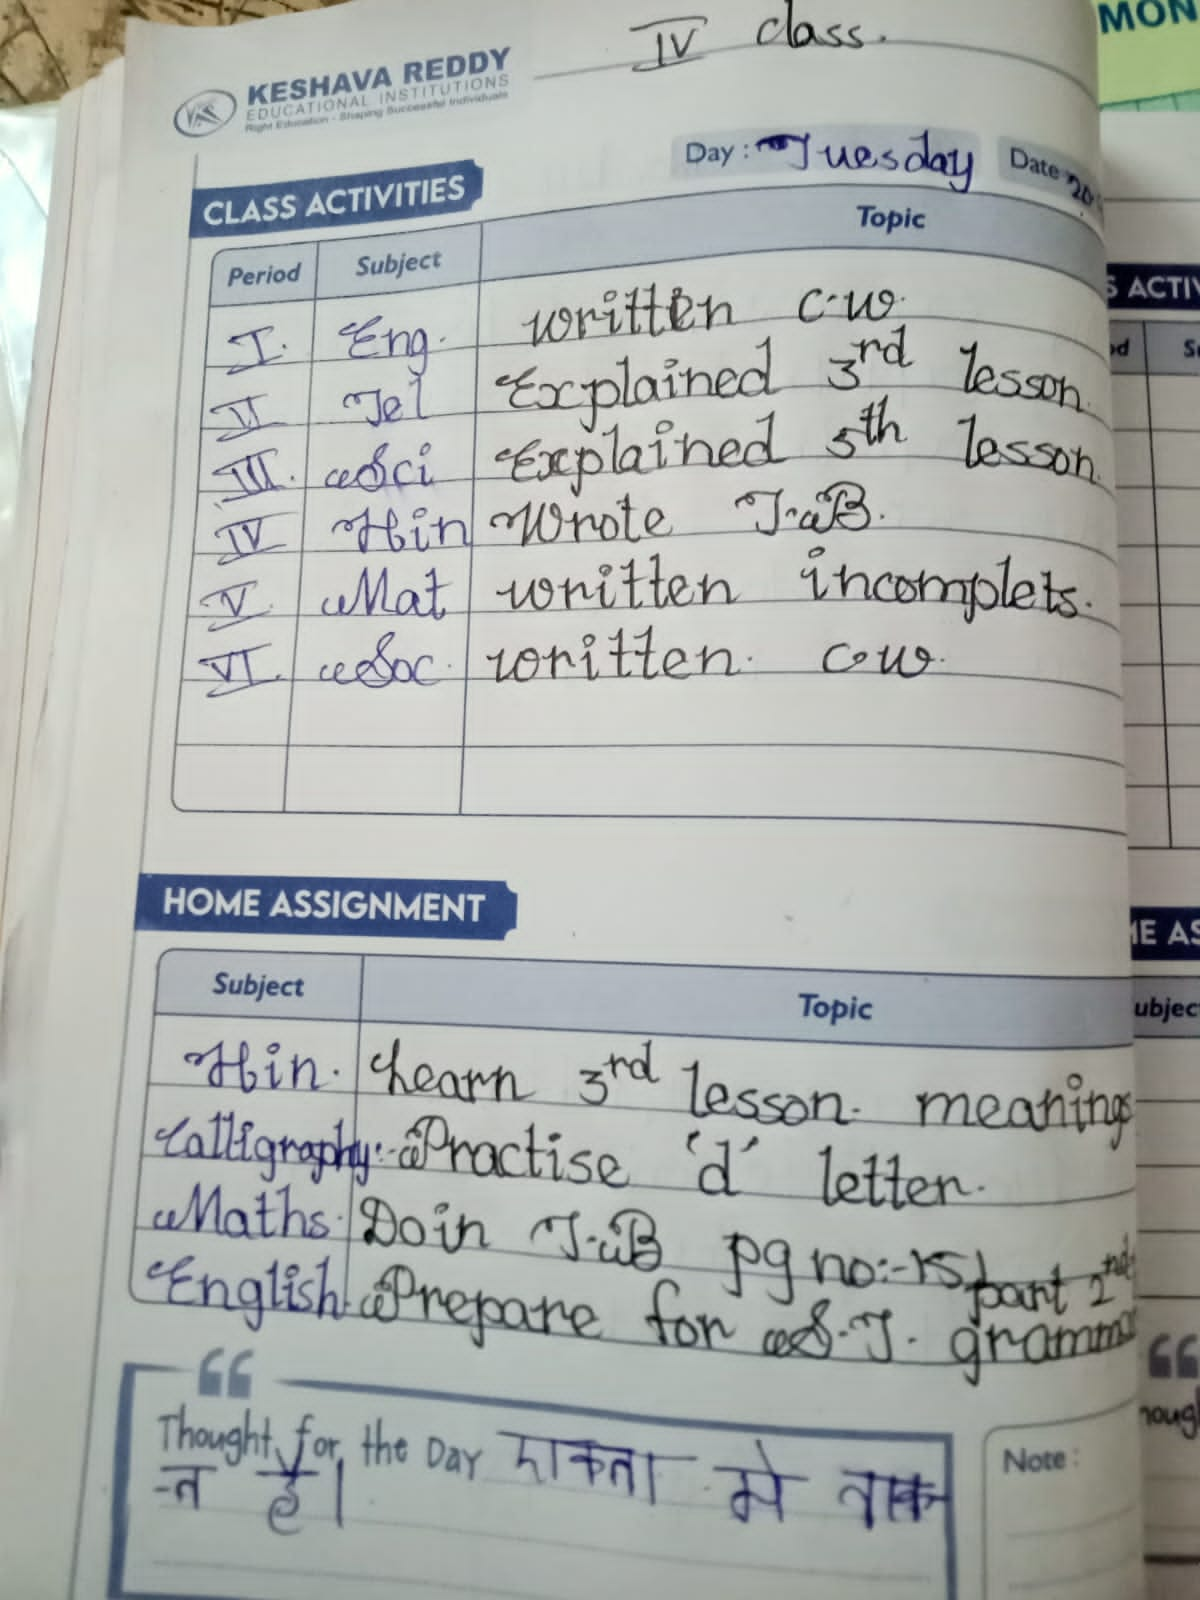 IV class.
KESHAVA REDDY
EDUCATIONAL INSTITUTIONS
Right Education - Shaping Successful Individuals
Day : Tuesday Date 20
CLASS ACTIVITIES
Period Subject Topic
I. Eng. written c.w.
II Tel Explained 3rd lesson.
III. Sci Explained 5th lesson.
IV Hin Wrote T.B.
V Mat written incomplets.
VI. Soc. written. c.w.
HOME ASSIGNMENT
Subject Topic
Hin. Learn 3rd lesson. meanings
Calligraphy:- Practise 'd' letter.
Maths. Do in T.B pg no:-15 part 2nd
English. Prepare for S.T. gramma
Thought for the Day एकता मे ताक
-त है।
Note :
MON
S ACTIV
od S
ME AS
ubjec
houg